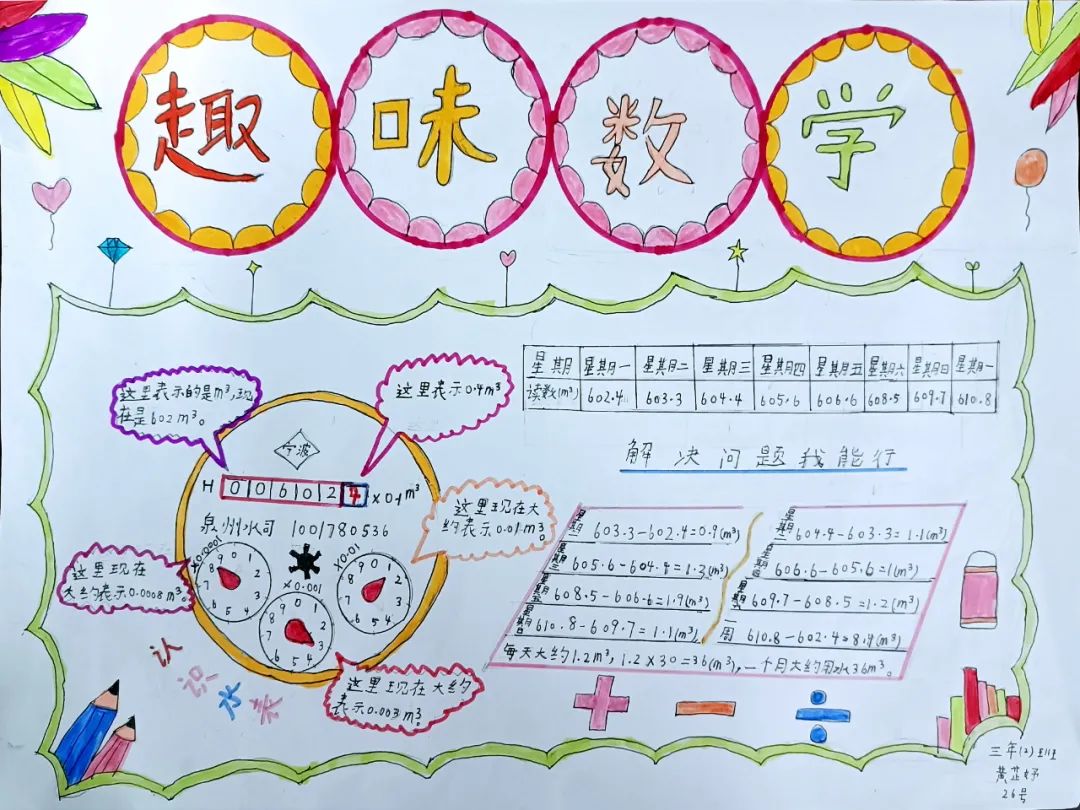 趣味数学
星期 星期一 星期二 星期三 星期四 星期五 星期六 星期日 星期一
读数(m³) 602.4 603.3 604.4 605.6 606.6 608.5 609.7 610.8
解决问题我能行
这里表示的是m³,现
在是602m³。
这里表示0.4m³
宁波
H 0 0 6 0 2 4 ×0.1m³
泉州水司 1001780536
这里现在大
约表示0.01m³
这里现在
大约表示0.0008m³。
×0.0001
×0.001
×0.01
9 0 1 2 3 4 5 6 7 8
9 0 1 2 3 4 5 6 7 8
9 0 1 2 3 4 5 6
这里现在大约
表示0.003m³。
认识水表
星期一 603.3-602.4=0.9(m³)
星期二 604.4-603.3=1.1(m³)
星期三 605.6-604.4=1.2(m³)
星期四 606.6-605.6=1(m³)
星期五 608.5-606.6=1.9(m³)
星期六 609.7-608.5=1.2(m³)
星期日 610.8-609.7=1.1(m³)
一周 610.8-602.4=8.4(m³)
每天大约1.2m³,1.2×30=36(m³),一个月大约用水36m³。
三年(2)班
黄芷妤
26号